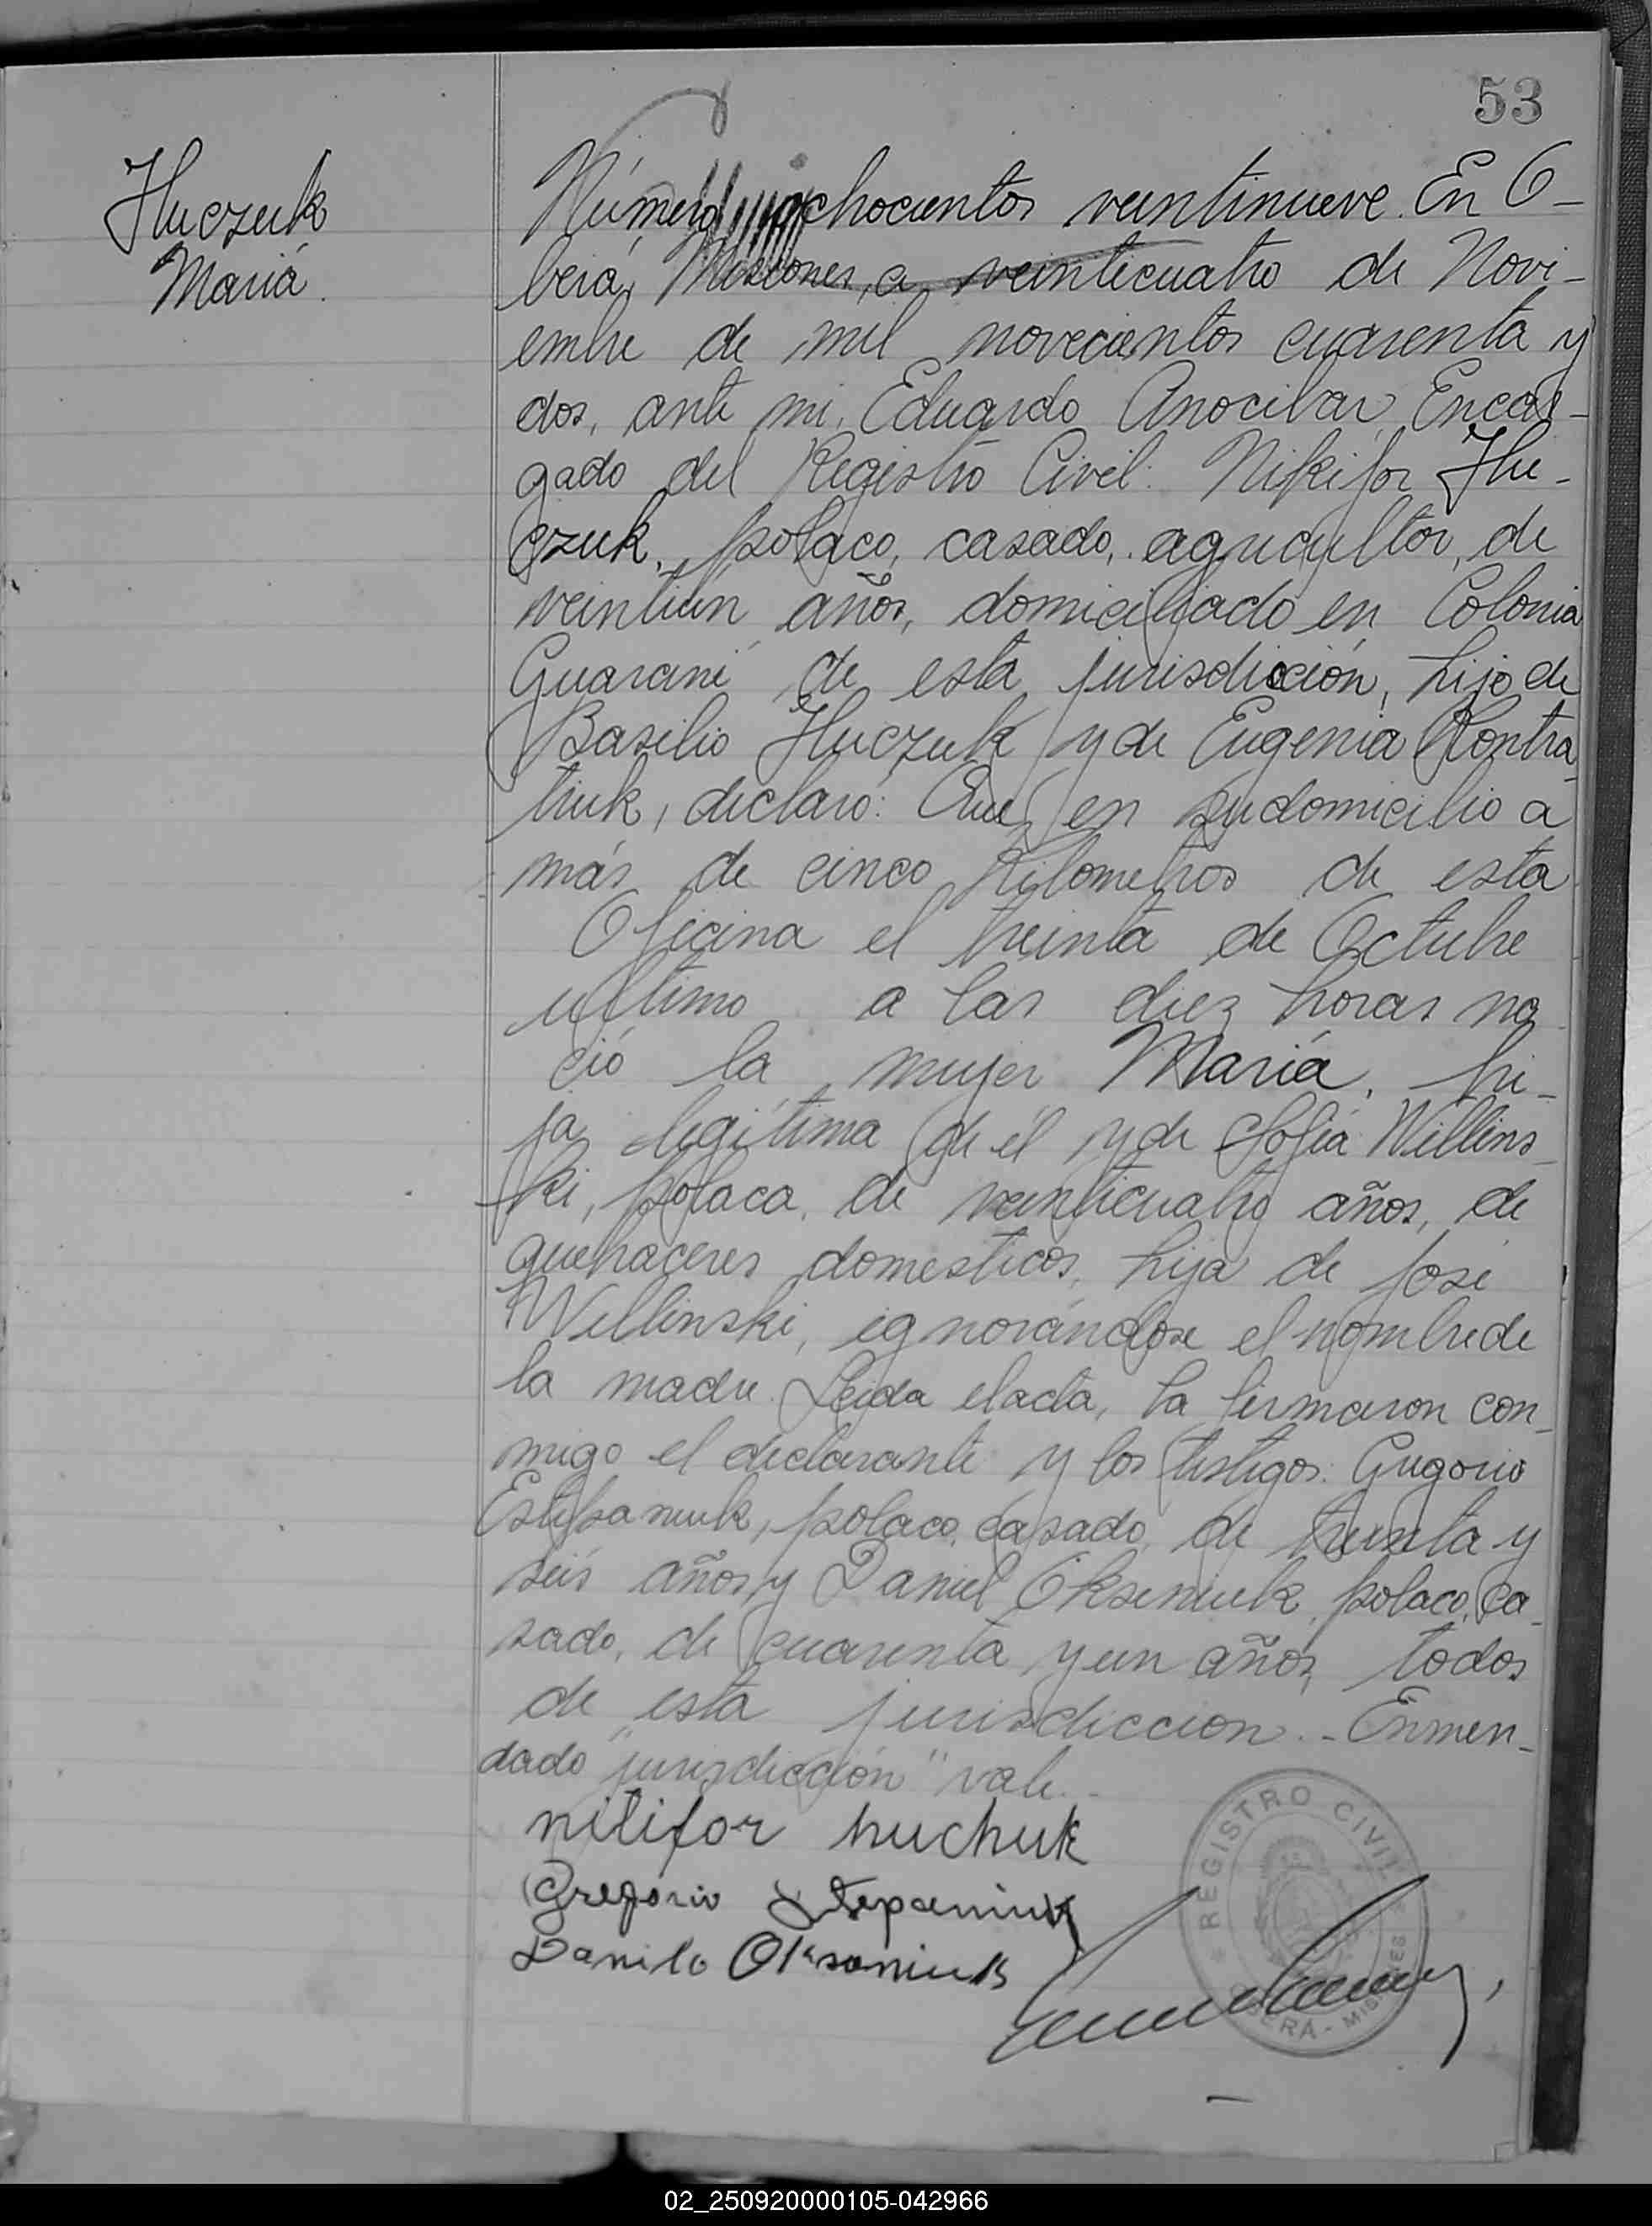 53
Huczuk
María.
Número ochocientos veintinueve. En O-
berá, Misiones, a veinticuatro de Novi-
embre de mil novecientos cuarenta y
dos, ante mi, Eduardo Anocibar, Encar-
gado del Registro Civil: Nikifor Hu-
czuk, polaco, casado, agricultor, de
veintiún años, domiciliado en Colonia
Guaraní de esta jurisdicción, hijo de
Basilio Huczuk y de Eugenia Kontra-
tiuk, declaró: Que en su domicilio a
más de cinco kilometros de esta
Oficina el treinta de Octubre
ultimo a las diez horas na-
ció la mujer María, hi-
ja legítima de él y de Sofía Willins-
ki, polaca, de veinticuatro años, de
quehaceres domesticos, hija de José
Willinski, ignorándose el nombre de
la madre. Leida el acta, la firmaron con-
migo el declarante y los testigos: Gregorio
Estepaniuk, polaco, casado, de treinta y
seis años y Daniel Okseniuk, polaco, ca-
sado, de cuarenta y un años, todos
de esta jurisdiccion.- Enmen-
dado "jurisdicción" vale.-
nikifor huchuk
Gregorio Stepaniuk
Danilo Oksaniuk
REGISTRO CIVIL
OBERÁ - MISIONES
02_250920000105-042966